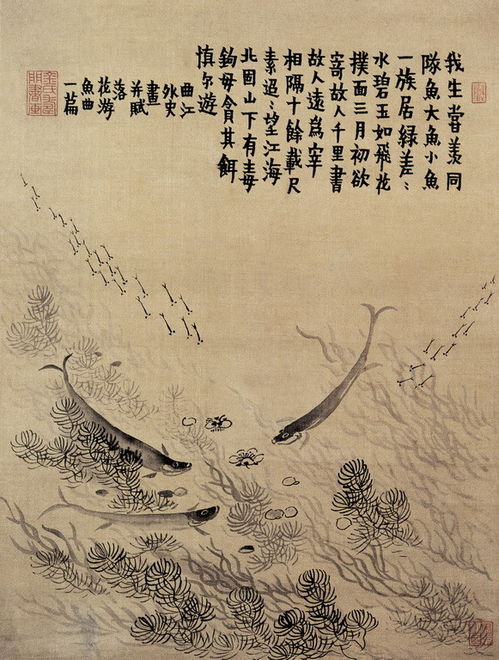 我生嘗羨同
隊魚大魚小魚
一族居綠差〻
水碧玉如飛花
撲面三月初欲
寄故人千里書
故人遠爲宰
相隔十餘載尺
素迢〻望江海
北固山下有毒
鉤毋貪其餌
慎尔遊
曲江
外史
畫
并賦
落
花游
魚曲
一篇